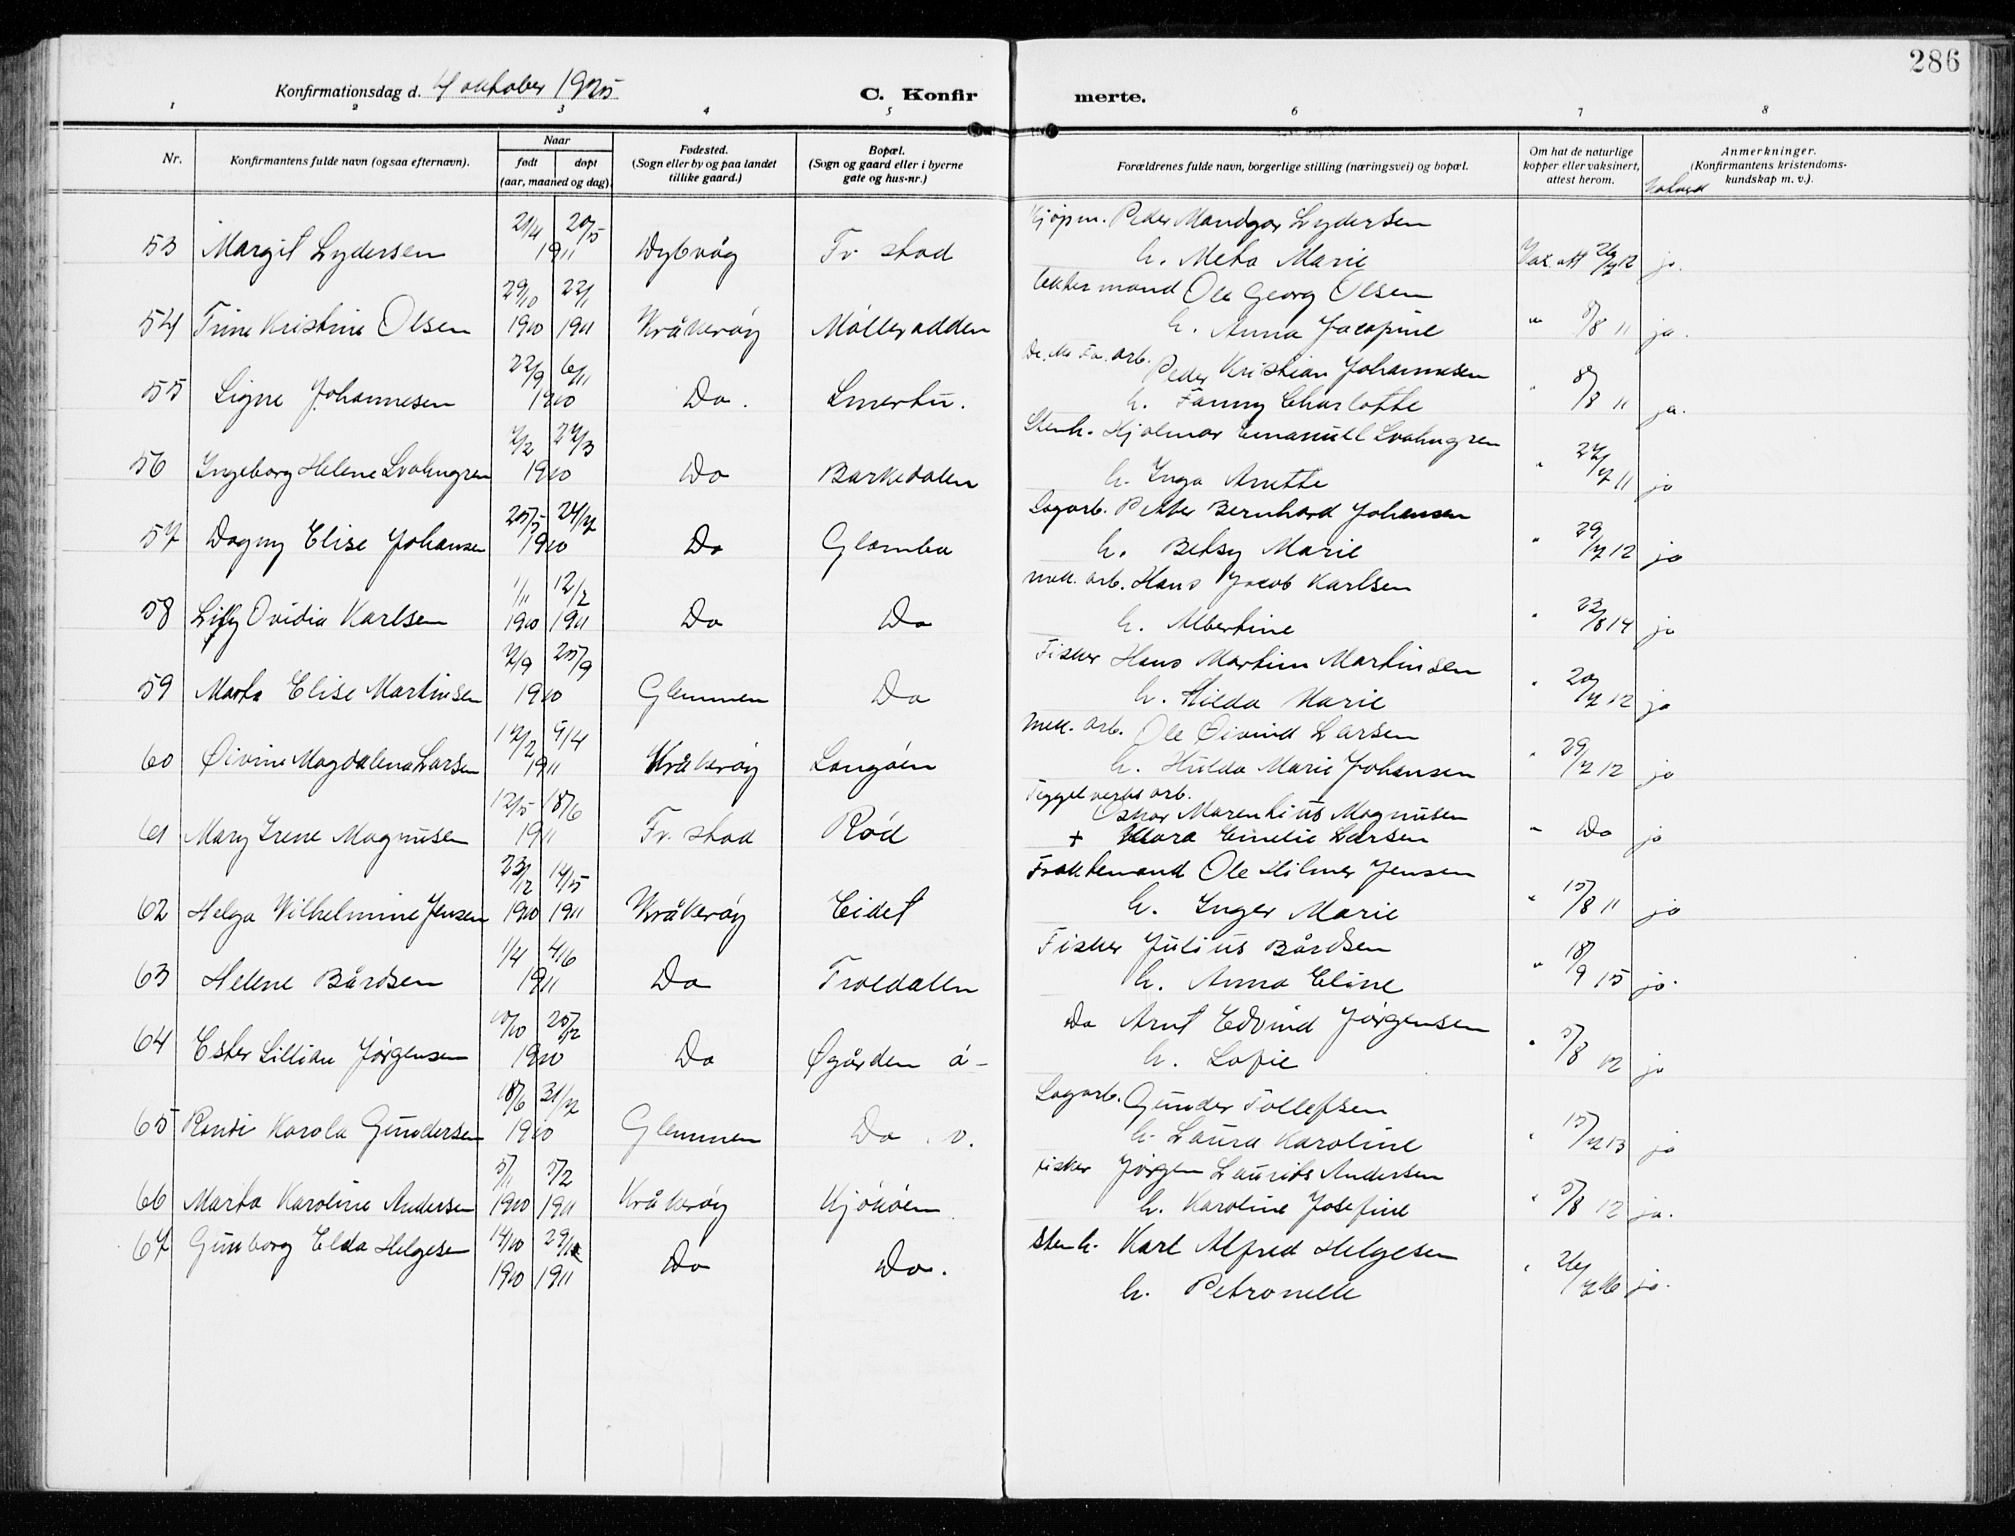 286
Konfirmationsdag d. 4 oktober 1925
C. Konfir merte.
1 2 3 4 5 6 7 8
Nr.
Konfirmantens fulde navn (ogsaa efternavn).
Naar
født døpt
(aar, maaned og dag).
Fødested.
(Sogn eller by og paa landet
tillike gaard.)
Bopæl.
(Sogn og gaard eller i byerne
gate og hus-nr.)
Forældrenes fulde navn, borgerlige stilling (næringsvei) og bopæl.
Om hat de naturlige
kopper eller vaksinert,
attest herom.
Anmerkninger.
(Konfirmantens kristendoms-
kundskap m. v.).
Kjøpm. Peder Mandgor Lydersen
53 Margit Lydersen 21/4 20/5 1911 Dybvåg Fr. stad h. Meta Marie Vax. att 26/3 12 ja.
Ole Georg Olsen
54 Trine Kristine Olsen 29/10 1910 22/1 1911 Kråkerøy Mølleradden h. Anna Jacopine " 5/8 11 ja.
Peder Kristian Johannesen
55 Signe Johannesen 22/9 6/11 1910 Do. Smertu. h. Fanny Charlotte " 8/8 11 ja.
Stenh. Hjalmar Emanuell Svalmgren
56 Ingeborg Helene Svalmgren 7/2 27/3 1910 Do Barkedalen h. Inga Anette " 27/7 11 ja
Sagarb. Petter Bernhard Johansen
57 Dagny Elise Johansen 25/5 24/7 1910 Do Glomba h. Betsy Marie " 29/7 12 ja
mek. arb. Hans Jacob Karlsen
58 Lilly Ovidia Karlsen 1/11 1910 12/2 1911 Do Do h. Albertine " 22/8 14 ja
Fisker Hans Martin Martinsen
59 Marta Elise Martinsen 7/9 25/9 1910 Glemmen Do h. Hilda Marie " 20/7 12 ja
mek. arb. Ole Øivind Larsen
60 Øivine Magdalena Larsen 12/2 9/4 1911 Kråkerøy Langøen h. Hulda Marie Johansen " 29/7 12 ja
Teggelverks arb.
Oskar Marentius Magnusen
61 Mary Irene Magnusen 12/5 18/6 1911 Fr. stad Rød + Klara Emelie Larsen " Do ja
Fraktemand Ole Hilmer Jensen
62 Helga Vilhelmine Jensen 23/12 1910 14/5 1911 Kråkerøy Eidet h. Inger Marie " 15/8 11 ja
Fisker Julius Bårdsen
63 Helene Bårdsen 1/4 4/6 1911 Do Troldalen h. Anna Eline " 18/9 15 ja.
Do Arnt Edvind Jørgensen
64 Ester Lillian Jørgensen 10/10 25/12 1910 Do Øgården ø- h. Sofie " 5/8 12 ja
Sagarb. Gunder Tollefsen
65 Randi Karola Gundersen 18/6 31/7 1910 Glemmen Do v. h. Laura Karoline " 15/7 13 ja
Fisker Jørgen Laurits Andersen
66 Marta Karoline Andersen 5/1 1910 5/2 1911 Kråkerøy Kjøkøen h. Karoline Josefine " 5/8 12 ja.
67 Gunborg Elda Helgesen 14/10 1910 29/1 1911 Do Do. Stenh. Karl Alfred Helgesen
h. Petronelle " 26/7 16 ja.